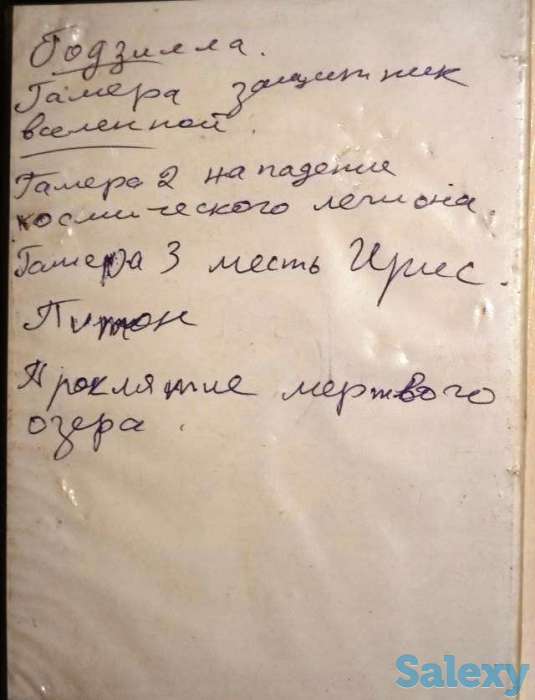 Годзилла.
Гамера защитник
вселенной.
Гамера 2 нападение
космического легиона.
Гамера 3 месть Ирис.
Питон
Проклятие мертвого
озера.
Salexy